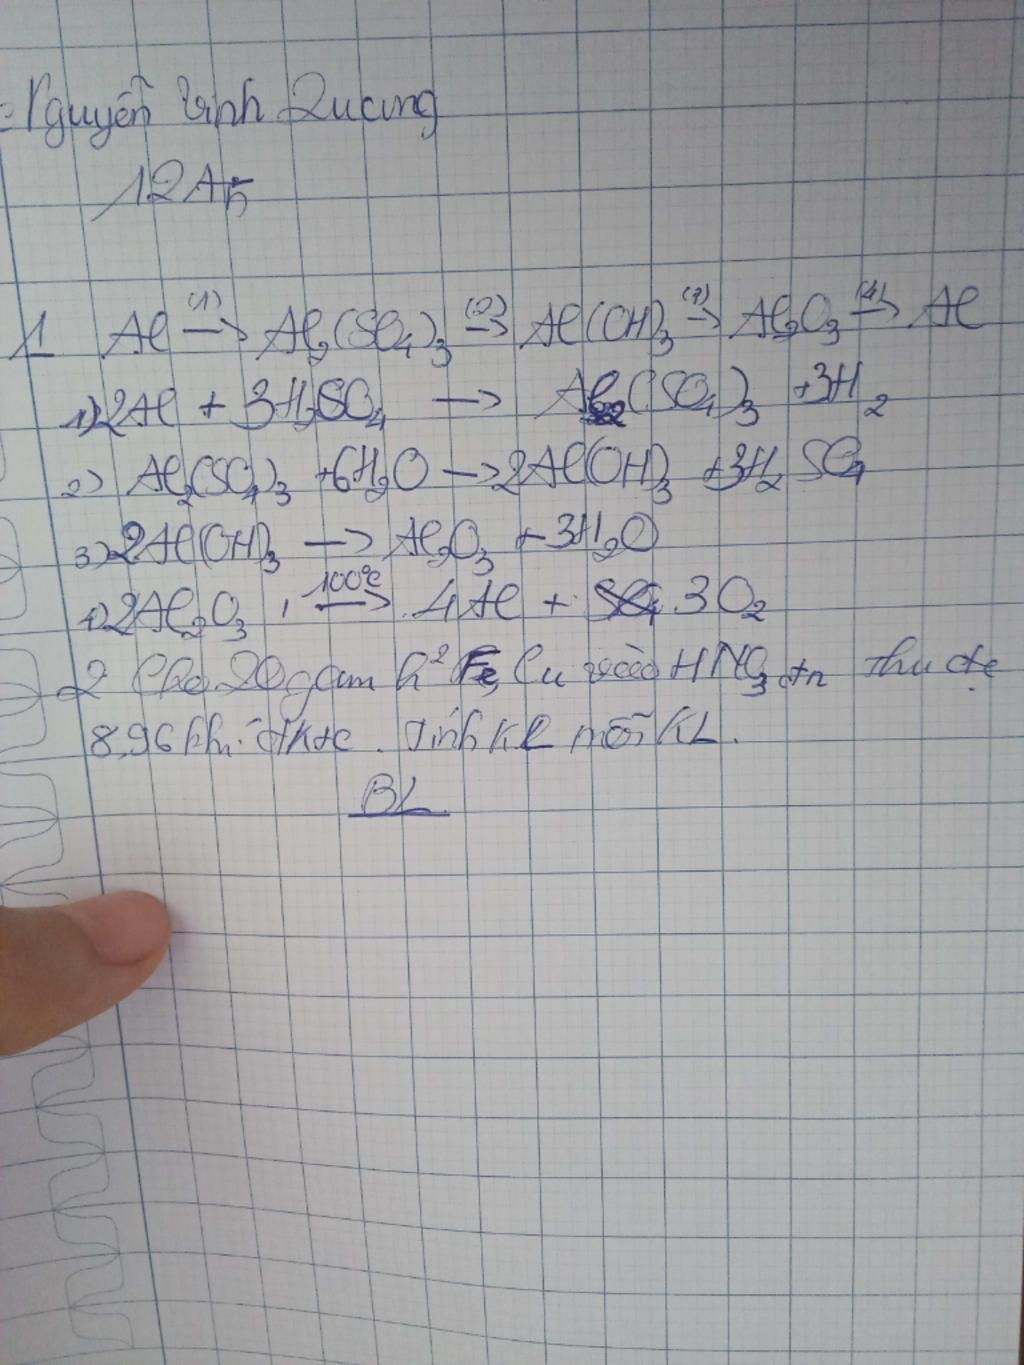 Nguyễn Vinh Quang
12A5
1 Al (1)→ Al2(SO4)3 (2)→ Al(OH)3 (3)→ Al2O3 (4)→ Al
1) 2Al + 3H2SO4 → Al2(SO4)3 + 3H2
2) Al2(SO4)3 + 6H2O → 2Al(OH)3 + 3H2SO4
3) 2Al(OH)3 → Al2O3 + 3H2O
4) 2Al2O3 100°C→ 4Al + 3O2
2 Cho 20gam h² Fe, Cu vào HNO3 thu đc
8,96 khí đktc. Tính KL mỗi KL.
BL